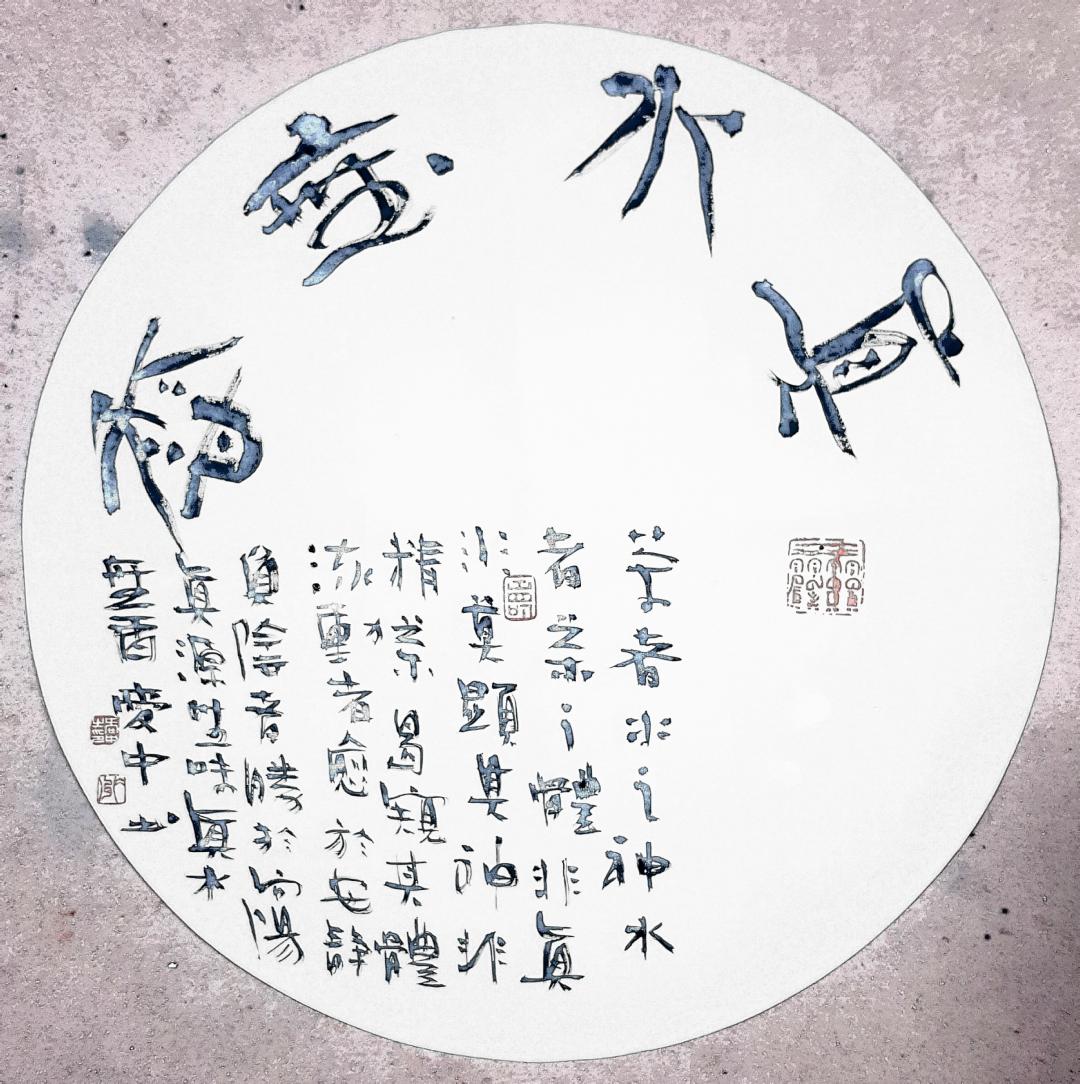 真水無香
茶者水之神水
者茶之體非真
水莫顯其神非
精茶曷窺其體
流動者愈於安靜
負陰者勝於向陽
真源無味真水
無香 愛中书